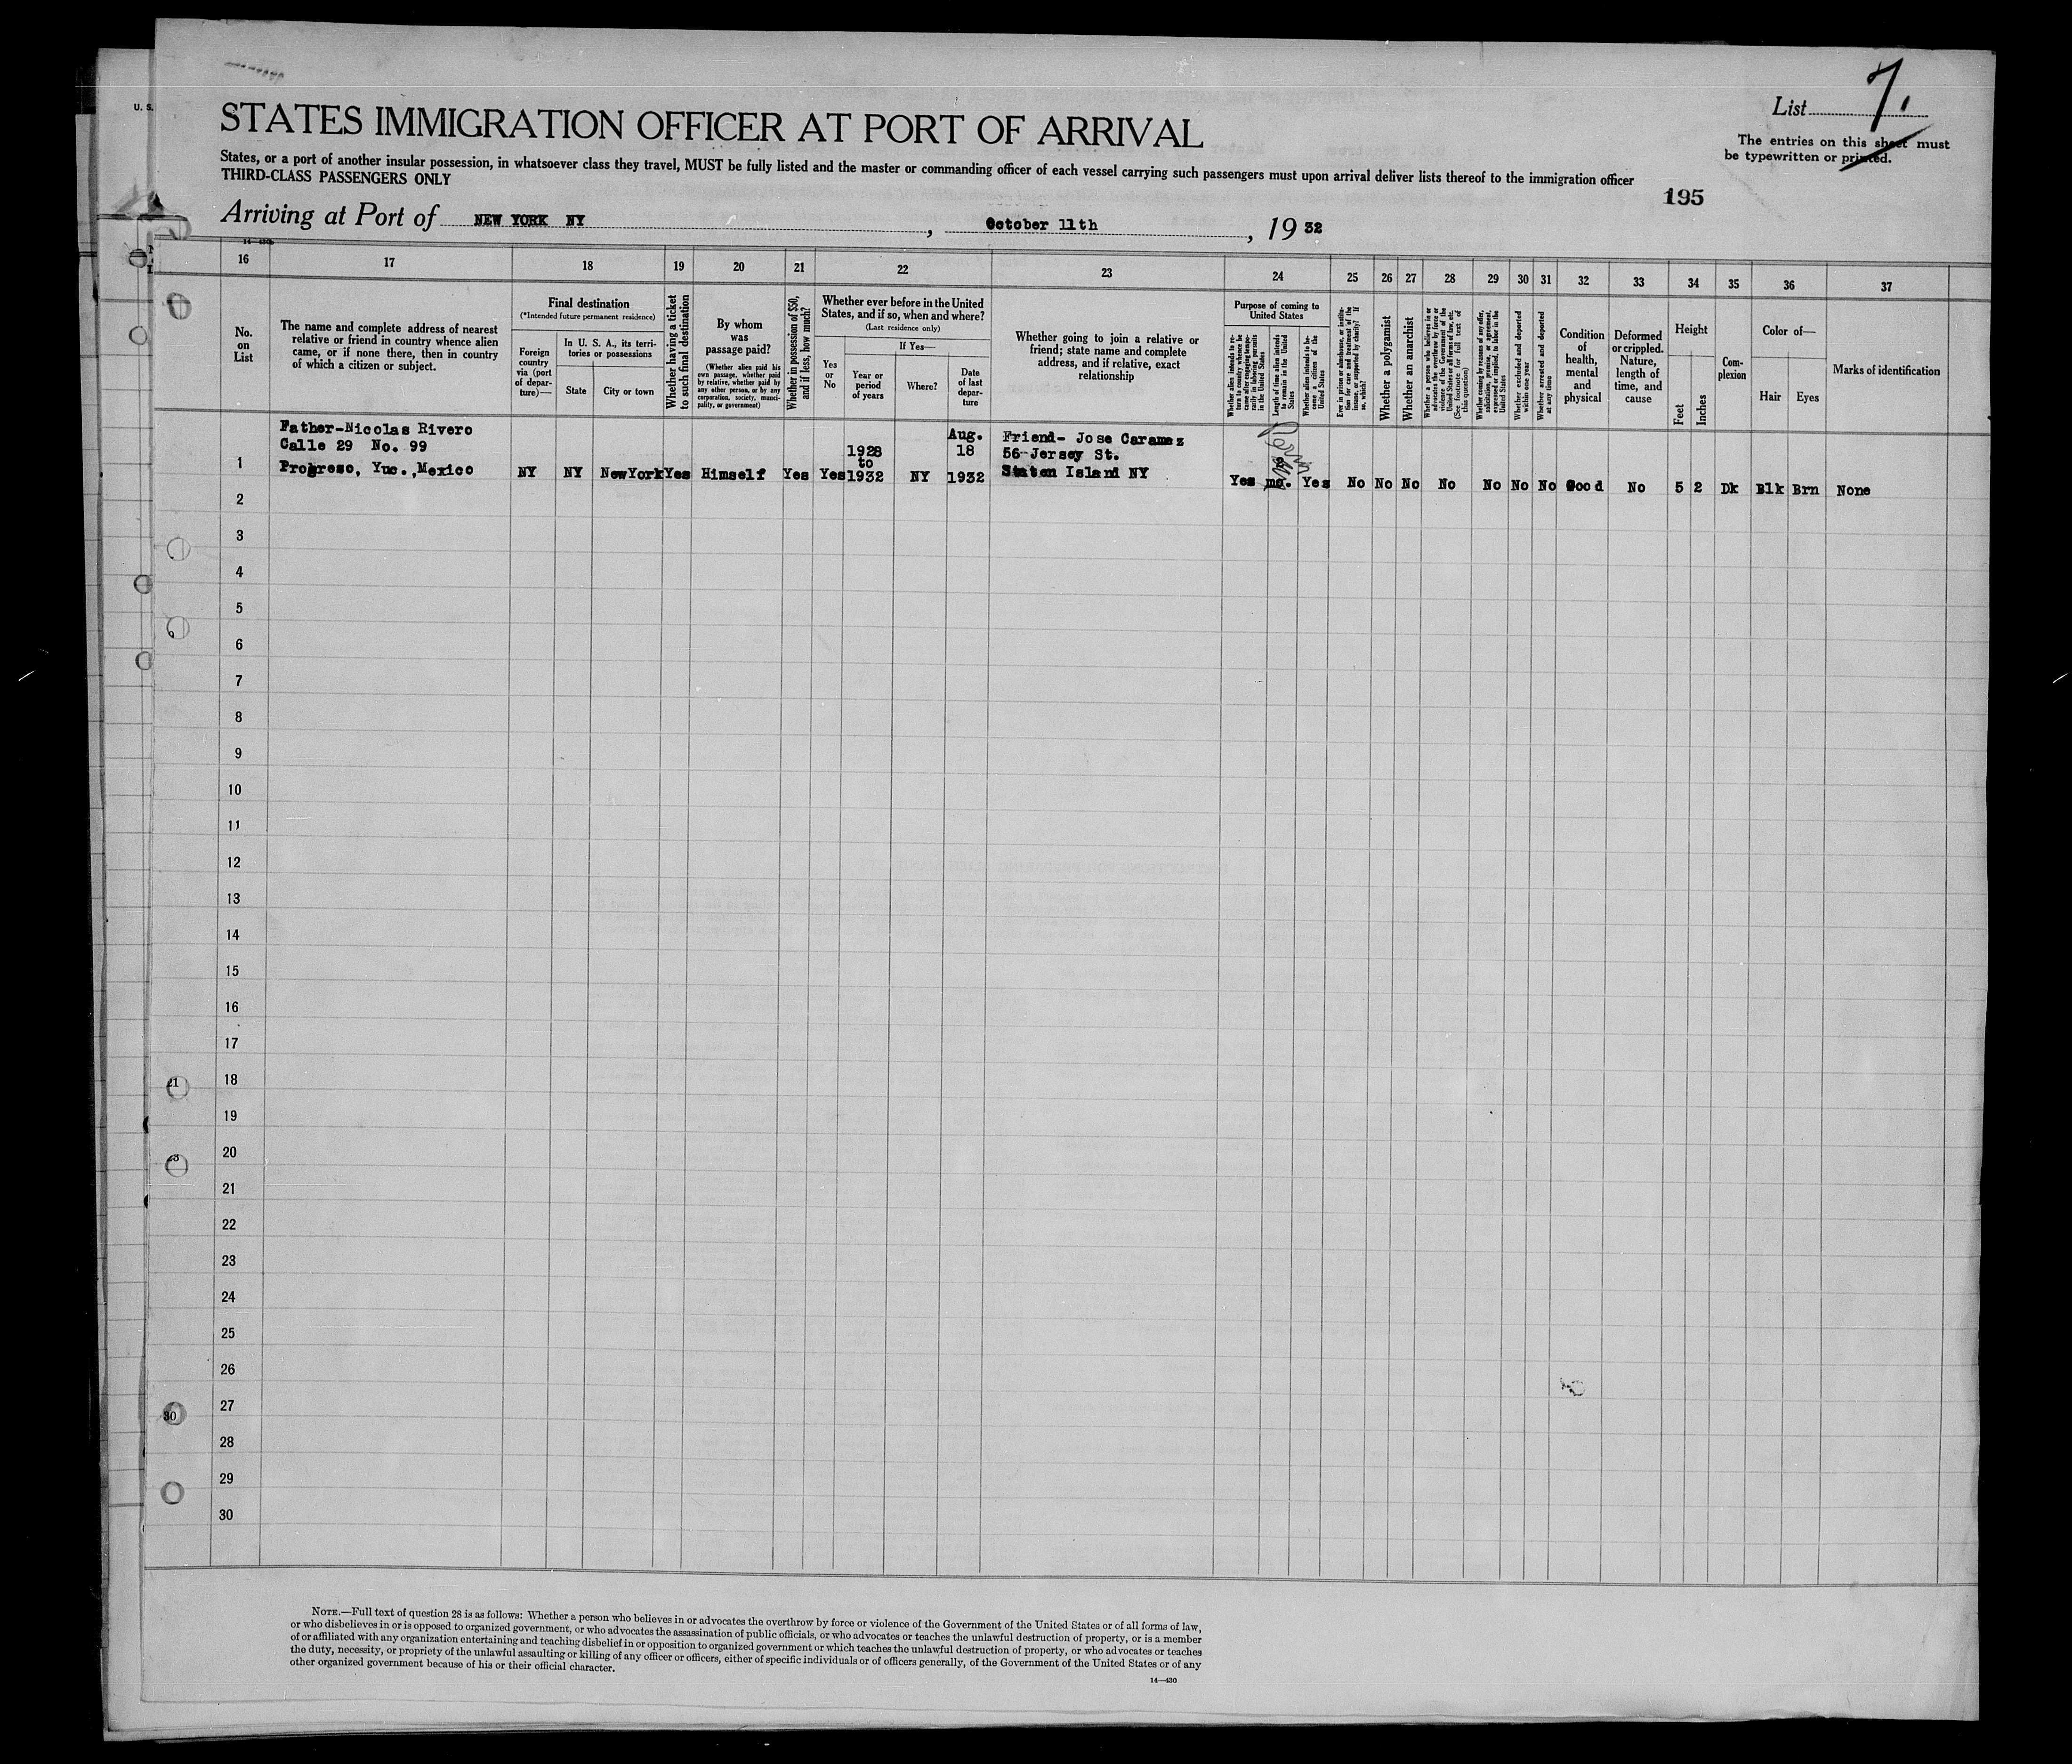 U. S.
List 7.
STATES IMMIGRATION OFFICER AT PORT OF ARRIVAL
The entries on this sheet must
be typewritten or printed.
States, or a port of another insular possession, in whatsoever class they travel, MUST be fully listed and the master or commanding officer of each vessel carrying such passengers must upon arrival deliver lists thereof to the immigration officer
THIRD-CLASS PASSENGERS ONLY
195
Arriving at Port of NEW YORK NY, October 11th, 19 32
16 17 18 19 20 21 22 23 24 25 26 27 28 29 30 31 32 33 34 35 36 37
No.
on
List
The name and complete address of nearest
relative or friend in country whence alien
came, or if none there, then in country
of which a citizen or subject.
Final destination
(*Intended future permanent residence)
Foreign
country
via (port
of depar-
ture)—
In U. S. A., its terri-
tories or possessions
State
City or town
Whether having a ticket
to such final destination
By whom
was
passage paid?
(Whether alien paid his
own passage, whether paid
by relative, whether paid by
any other person, or by any
corporation, society, munici-
pality, or government)
Whether in possession of $50,
and if less, how much?
Whether ever before in the United
States, and if so, when and where?
(Last residence only)
Yes
or
No
If Yes—
Year or
period
of years
Where?
Date
of last
depar-
ture
Whether going to join a relative or
friend; state name and complete
address, and if relative, exact
relationship
Purpose of coming to
United States
Whether alien intends to re-
turn to country whence he
came after engaging tempo-
rarily in laboring pursuits
in the United States
Length of time alien intends
to remain in the United
States
Whether alien intends to be-
come a citizen of the
United States
Ever in prison or almshouse, or institu-
tion for care and treatment of the
insane, or supported by charity? If
so, which?
Whether a polygamist
Whether an anarchist
Whether a person who believes in or
advocates the overthrow by force or
violence of the Government of the
United States or all forms of law, etc.
(See footnote for full text of
this question)
Whether coming by reasons of any offer,
solicitation, promise, or agreement,
expressed or implied, to labor in the
United States
Whether excluded and deported
within one year
Whether arrested and deported
at any time
Condition
of
health,
mental
and
physical
Deformed
or crippled.
Nature,
length of
time, and
cause
Height
Feet
Inches
Com-
plexion
Color of—
Hair
Eyes
Marks of identification
Father-Nicolas Rivero
Calle 29 No. 99
Progreso, Yuc., Mexico
1 NY NY NewYork Yes Himself Yes Yes
1928
to
1932
NY
Aug.
18
1932
Friend- Jose Caramez
56-Jersey St.
Staten Island NY
Yes mo. Yes No No No No No No No Good No 5 2 Dk Blk Brn None
2
3
4
5
6
7
8
9
10
11
12
13
14
15
16
17
18
19
20
21
22
23
24
25
26
27
28
29
30
NOTE.—Full text of question 28 is as follows: Whether a person who believes in or advocates the overthrow by force or violence of the Government of the United States or of all forms of law,
or who disbelieves in or is opposed to organized government, or who advocates the assassination of public officials, or who advocates or teaches the unlawful destruction of property, or is a member
of or affiliated with any organization entertaining and teaching disbelief in or opposition to organized government or which teaches the unlawful destruction of property, or who advocates or teaches
the duty, necessity, or propriety of the unlawful assaulting or killing of any officer or officers, either of specific individuals or of officers generally, of the Government of the United States or of any
other organized government because of his or their official character.
14—430